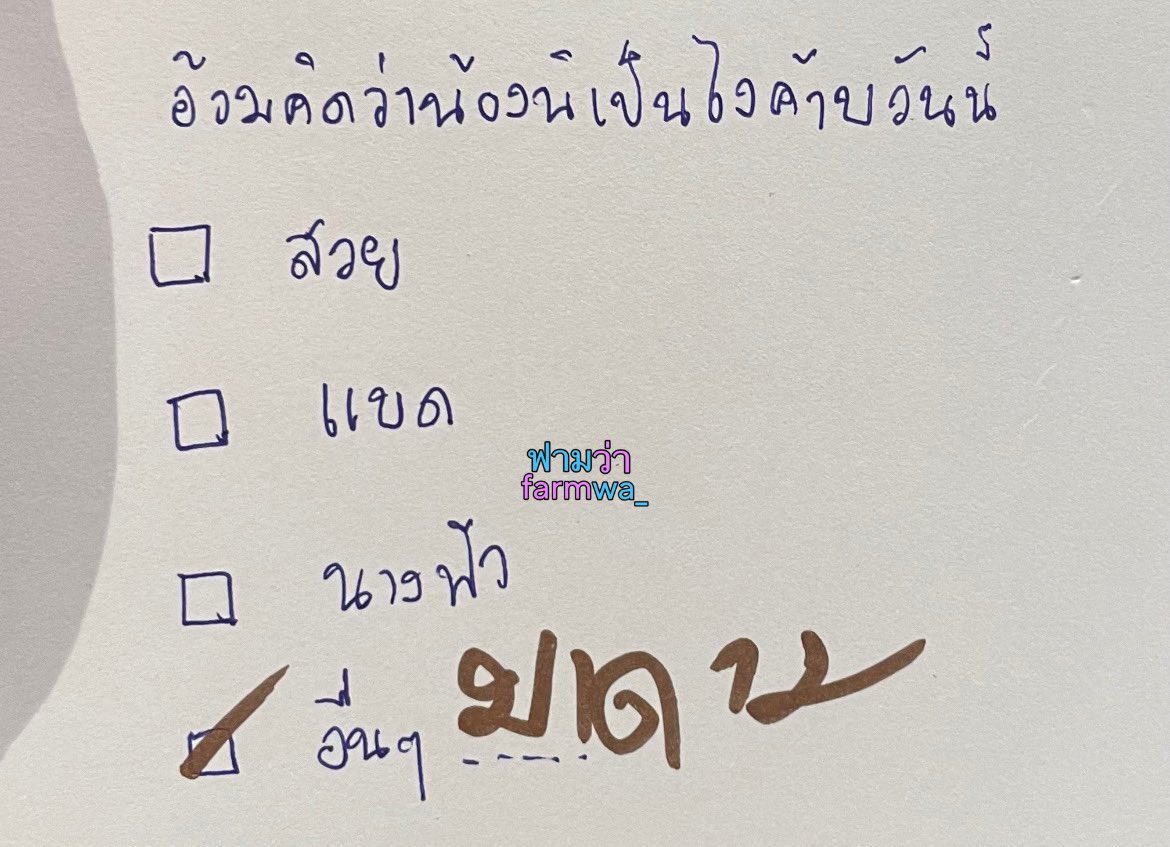 อ้วมคิดว่าน้องนิเป็นไงค้าบวันนี้
สวย
แบด
ฟามว่า
farmwa_
นางฟ้า
อื่นๆ